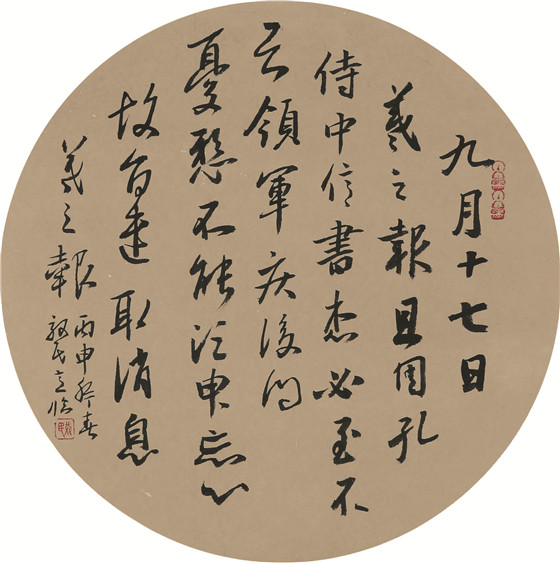 九月十七日
羲之報且因孔
侍中信書想必至不
知領軍疾後問
憂懸不能須臾忘心
故旨遣取消息
羲之報
丙申春